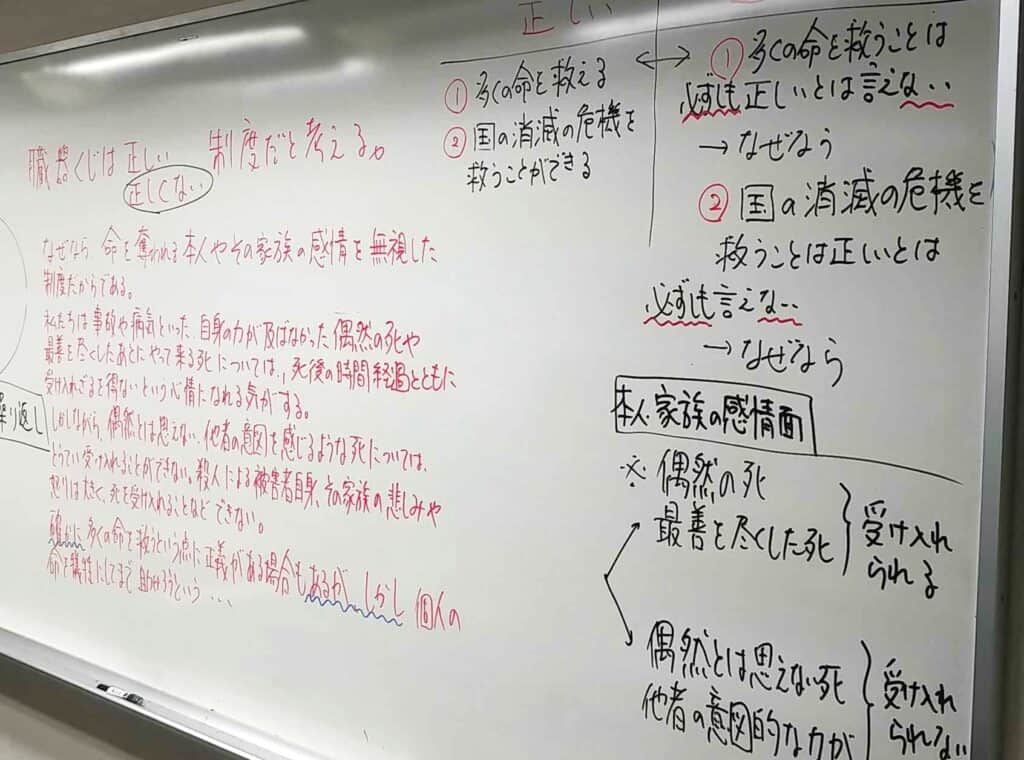 臓器くじは正しい 制度だと考える。
正しくない
なぜなら、命を奪われる本人やその家族の感情を無視した
制度だからである。
私たちは事故や病気といった、自身の力が及ばなかった偶然の死や
最善を尽くしたあとにやって来る死については、死後の時間経過とともに
受け入れざるを得ないという心情になれる気がする。
しかしながら、偶然とは思えない、他者の意図を感じるような死については、
とうてい受け入れることができない。殺人による被害者自身、その家族の悲しみや
怒りは大きく、死を受け入れることなどできない。
確かに多くの命を救うという点に正義がある場合もあるが、しかし個人の
命を犠牲にしてまで助かろうという…
繰り返し
正しい
①多くの命を救える
②国の消滅の危機を
救うことができる
↔
①多くの命を救うことは
必ずしも正しいとは言えない‥
→なぜなら
②国の消滅の危機を
救うことは正しいとは
必ずしも言えない‥
→なぜなら
本人・家族の感情面
※偶然の死
最善を尽くした死
受け入れ
られる
偶然とは思えない死
他者の意図的な力が
受け入れ
られない